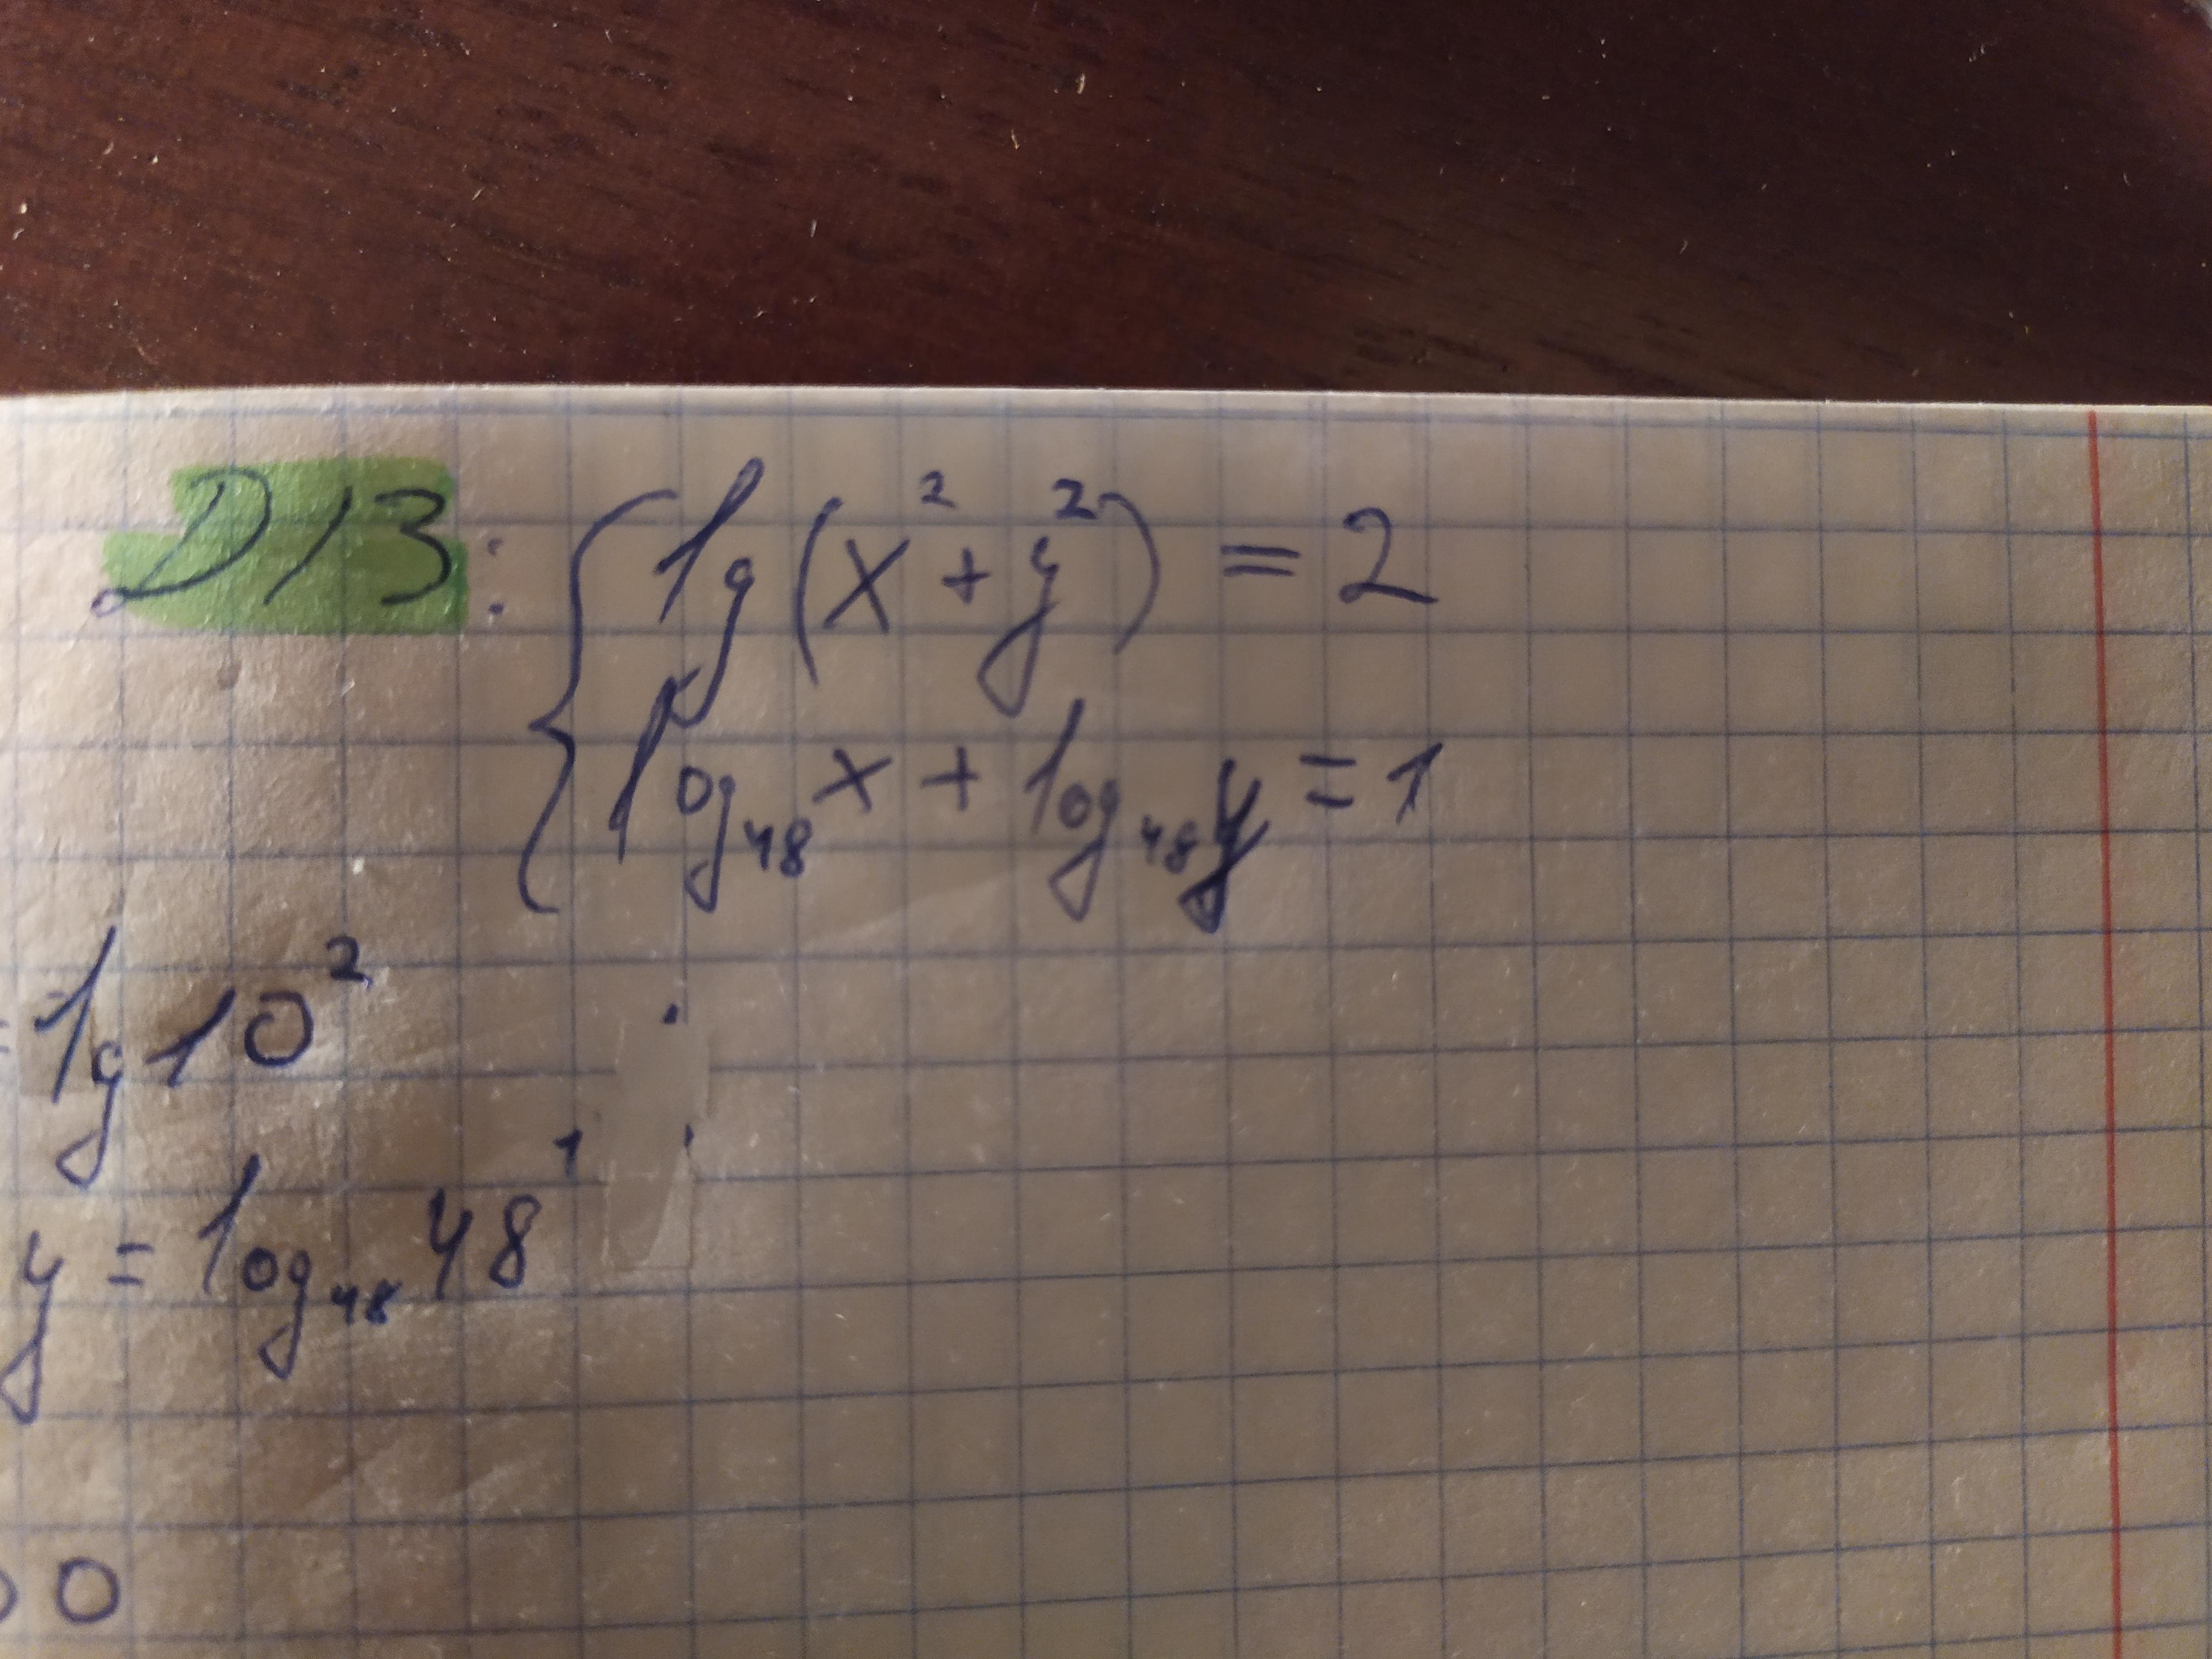 D/3: { lg(x²+y²) = 2
log₄₈x + log₄₈y = 1
= lg10²
y = log₄₈48¹
00